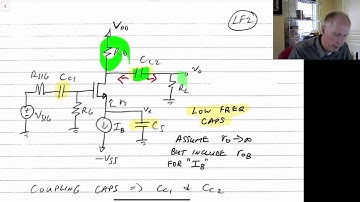 LF2
VDD
RD
CC2
Vo
RSIG
CC1
RL
VSIG
RG
rs
Vs
IB
CS
-VSS
LOW FREQ
CAPS
ASSUME ro → ∞
BUT INCLUDE roB
FOR "IB"
COUPLING CAPS ⇒ CC1 & CC2